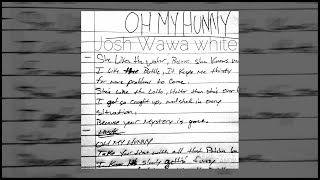 OH MY HUNNY
Josh Wawa white
- She Likes the water, Because she knows
I Like the Bottle, It Keeps me thirsty
for more problems to come.
She's like the Lotto, Hotter than she's ever
I got so caught up, and stuck in every
situation.
Because your Mystery is gone.
OH MY HUNNY
Take your time with all that
I Know slowly gettin' away